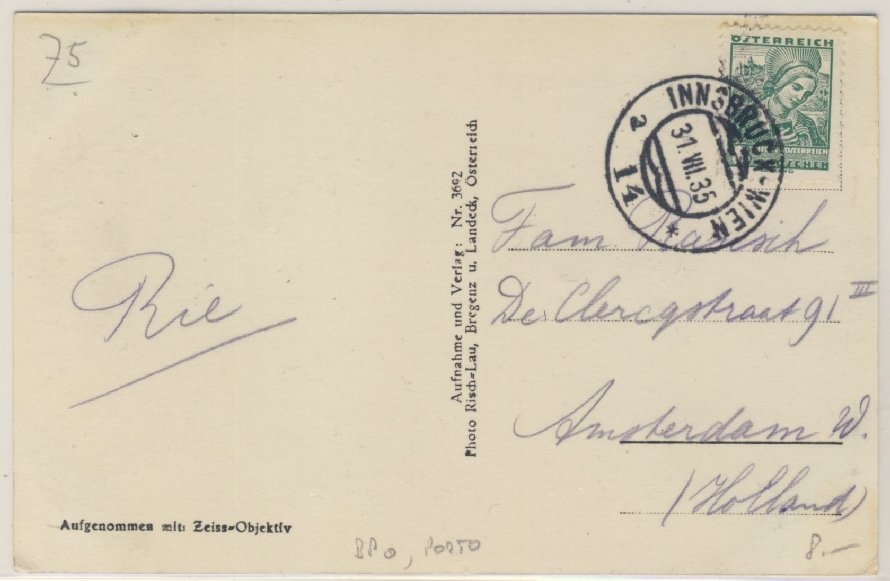 75
ÖSTERREICH
INNSBRUCK-WIEN
31.VII.35
* 14 a
Rie
Aufnahme und Verlag: Nr. 3692
Photo Risch=Lau, Bregenz u. Landeck, Österreich
Fam.
De Clercqstraat 91 III
Amsterdam W.
(Holland)
Aufgenommen mit: Zeiss=Objektiv
PORTO
8.—